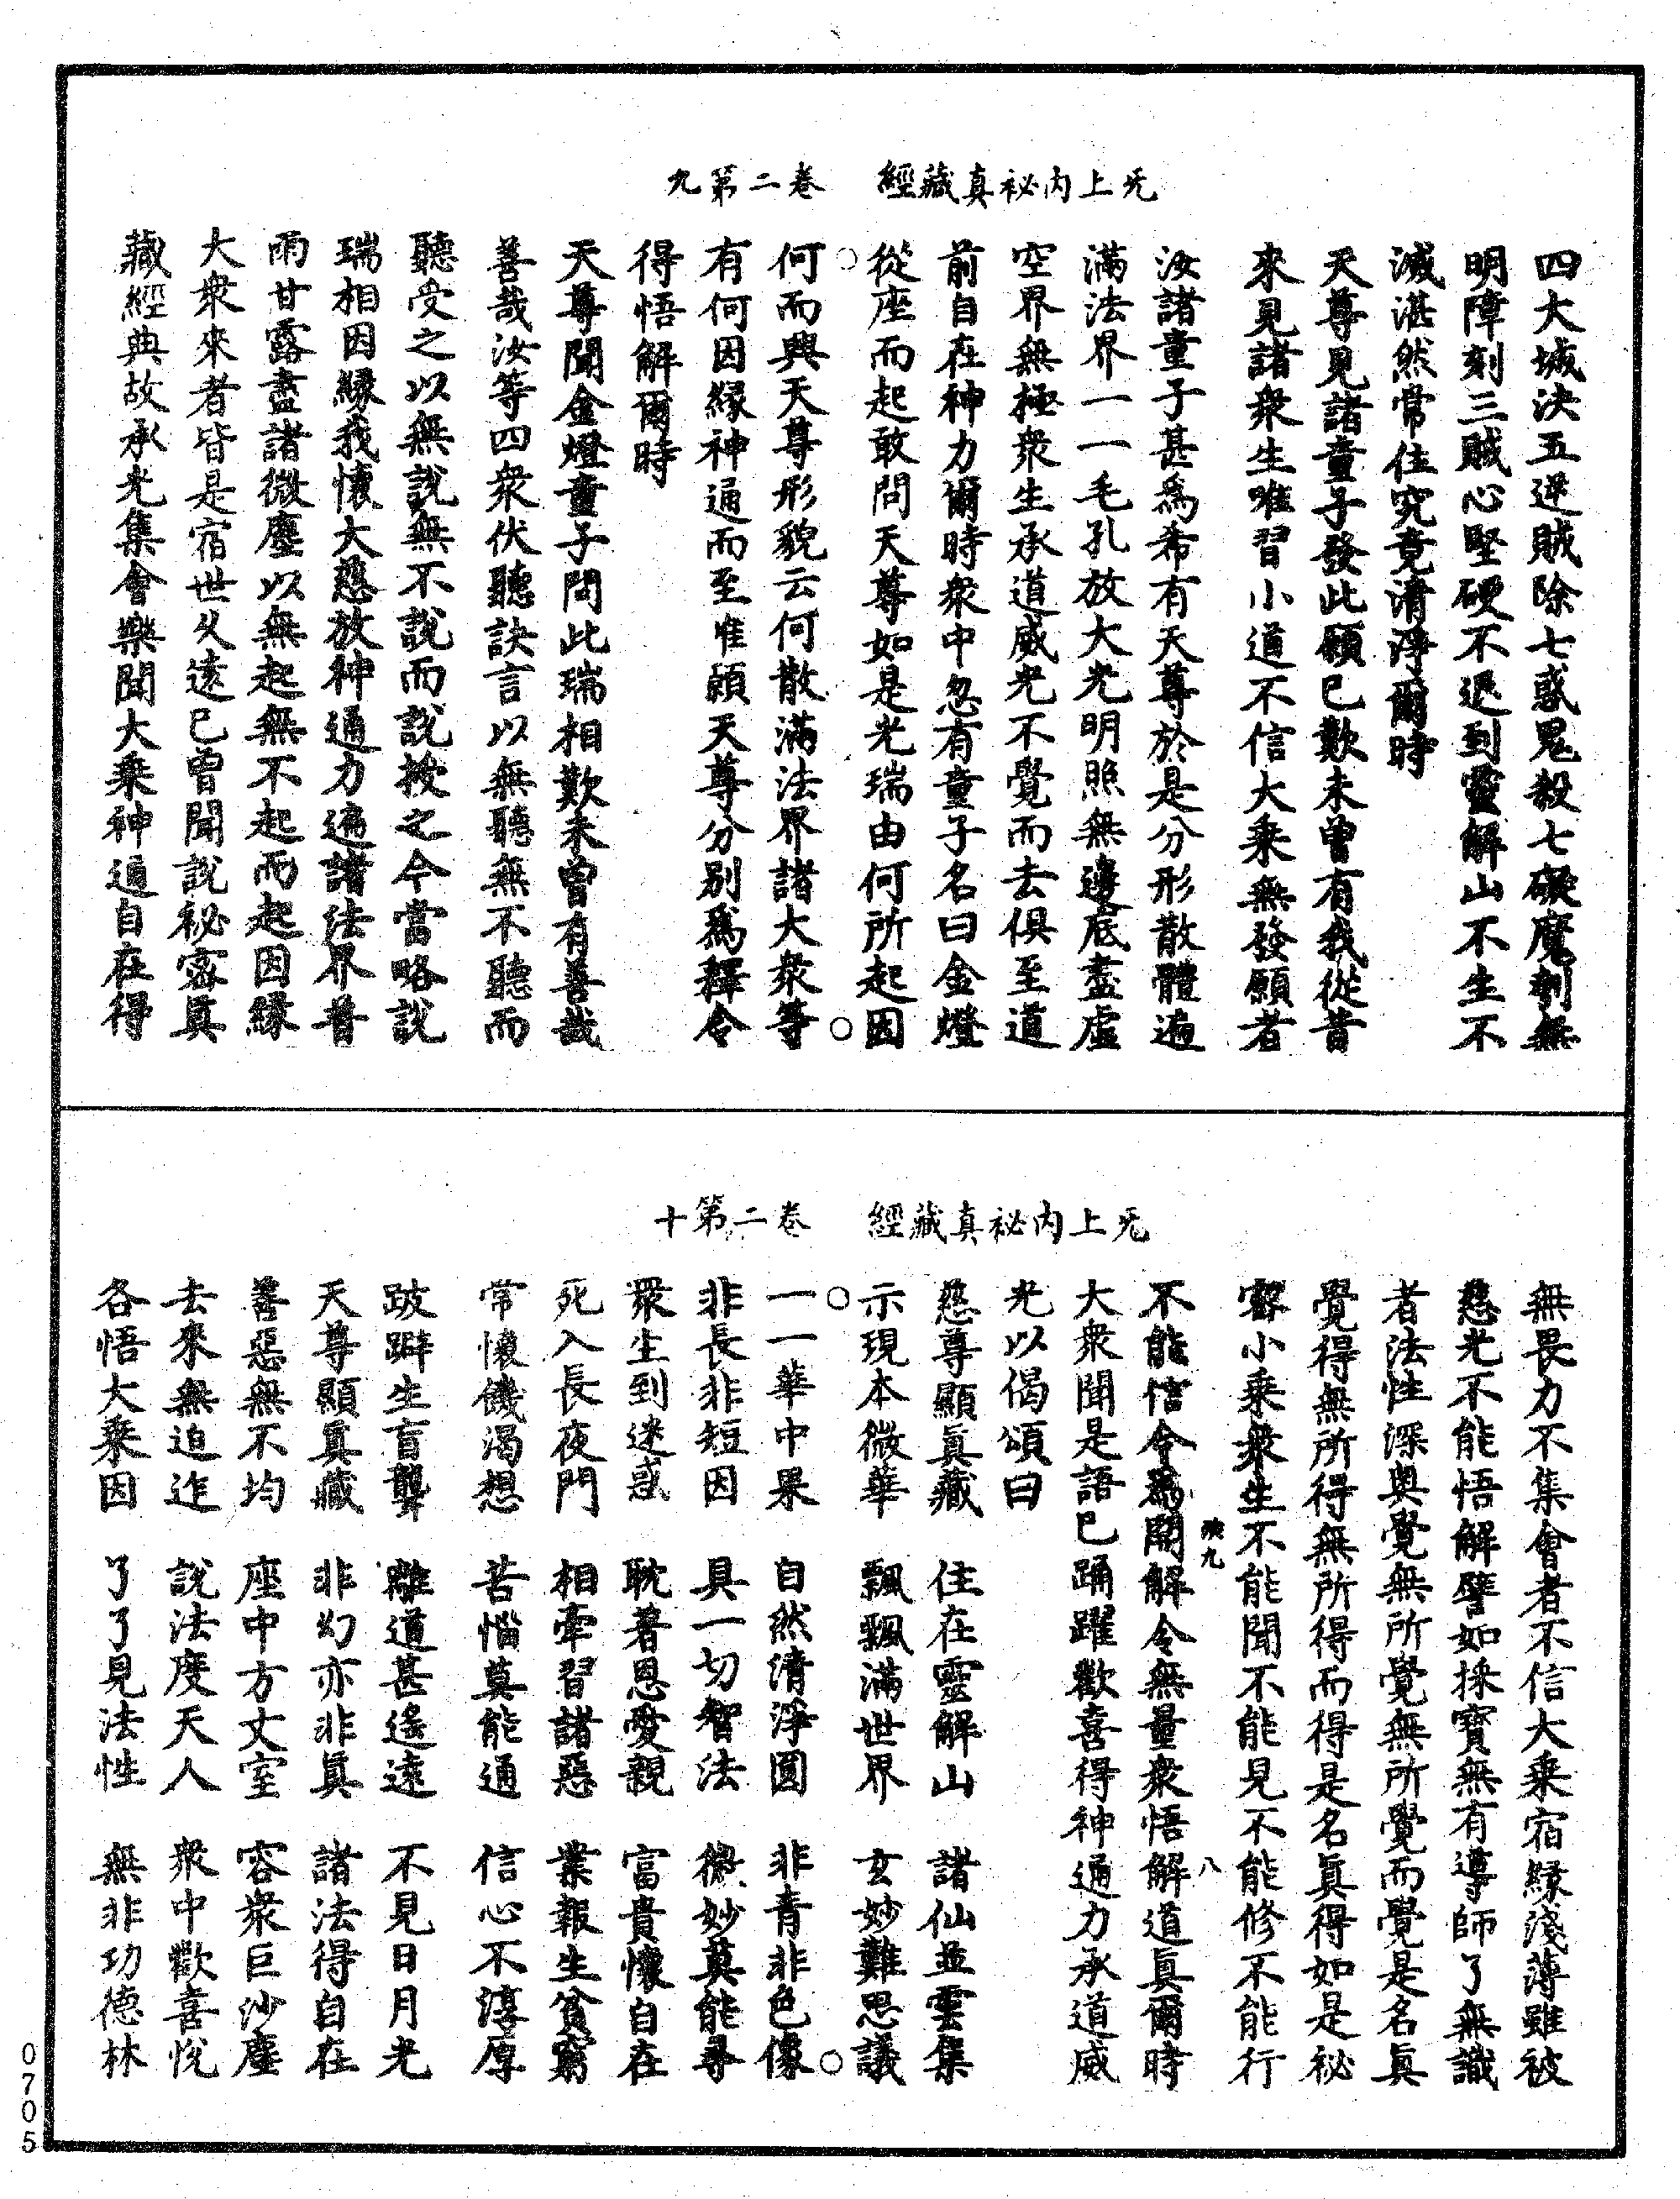 无上內祕真藏經　卷二第九
四大城決五逆賊除七惑鬼殺七礙魔制無
明障刻三賊心堅硬不退到靈解山不生不
滅湛然常住究竟清淨爾時
天尊見諸童子發此願已歎未曾有我從昔
來見諸衆生唯習小道不信大乘無發願者
汝諸童子甚爲希有天尊於是分形散體遍
滿法界一一毛孔放大光明照無邊底盡虛
空界無極衆生承道威光不覺而去俱至道
前自在神力爾時衆中忽有童子名曰金燈
從座而起敢問天尊如是光瑞由何所起因
何而興天尊形貌云何散滿法界諸大衆等
有何因緣神通而至唯願天尊分別爲釋令
得悟解爾時
天尊聞金燈童子問此瑞相歎未曾有善哉
善哉汝等四衆伏聽訣言以無聽無不聽而
聽受之以無說無不說而說授之今當略說
瑞相因緣我懷大慈放神通力遍諸法界普
雨甘露盡諸微塵以無起無不起而起因緣
大衆來者皆是宿世久遠已曾聞說祕密真
藏經典故承光集會樂聞大乘神通自在得
无上內祕真藏經　卷二第十
無畏力不集會者不信大乘宿緣淺薄雖被
慈光不能悟解譬如採寶無有導師了無識
者法性深奥覺無所覺無所覺而覺是名真
覺得無所得無所得而得是名真得如是祕
密小乘衆生不能聞不能見不能修不能行
不能信令爲開解令無量衆悟解道真爾時
大衆聞是語已踊躍歡喜得神通力承道威
光以偈頌曰
慈尊顯真藏　住在靈解山　諸仙並雲集
示現本微華　飄飄滿世界　玄妙難思議
一一華中果　自然清淨圓　非青非色像
非長非短因　具一切智法　微妙莫能尋
衆生到迷惑　耽著恩愛親　富貴懷自在
死入長夜門　相牽習諸惡　業報生貧窮
常懷饑渴想　苦惱莫能通　信心不淳厚
跛躃生盲聾　離道甚遙遠　不見日月光
天尊顯真藏　非幻亦非真　諸法得自在
善惡無不均　座中方丈室　容衆巨沙塵
去來無迫迮　說法度天人　衆中歡喜悅
各悟大乘因　了了見法性　無非功德林
殃九
八
0705